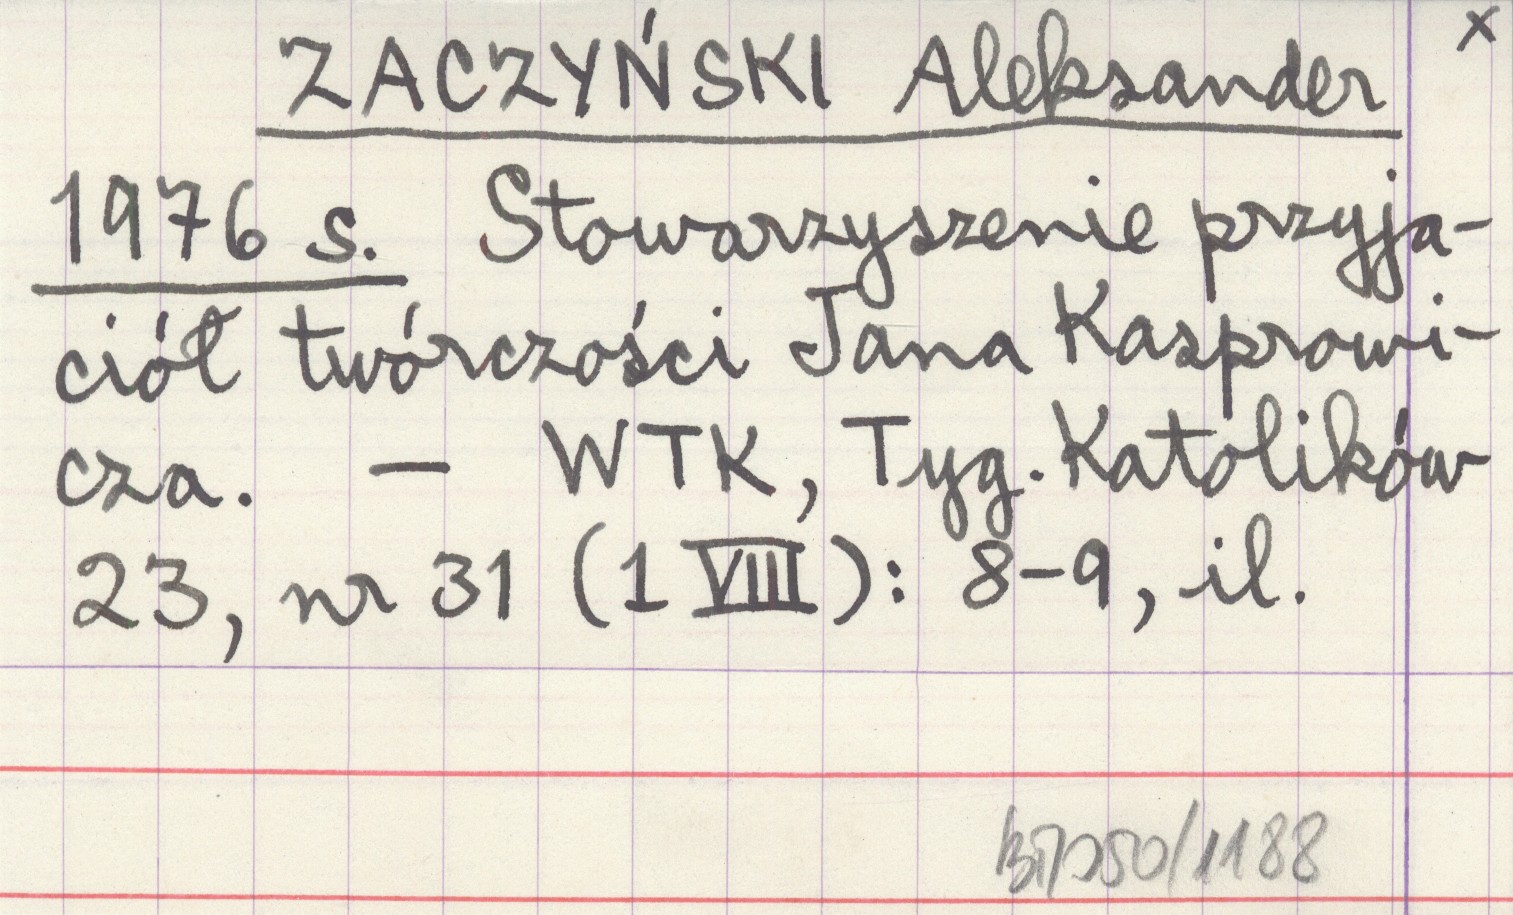 x
ZACZYŃSKI Aleksander
1976 s. Stowarzyszenie przyja-
ciół twórczości Jana Kasprowi-
cza. — WTK, Tyg. Katolików
23, nr 31 (1 VIII): 8-9, il.